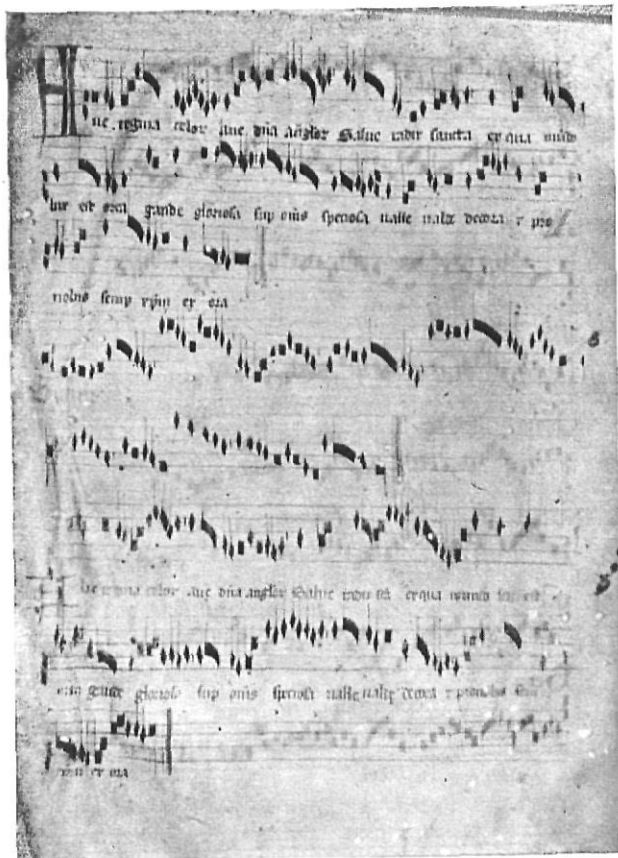 Aue regina celor aue dña añglor Salue radix sancta ex qua mūdo
lux est orta gaude gloriosa sup omīs speciosa ualle ualde decora τ pro
nobis semp xp̄m ex ora
regina celor aue dña anglor Salue radix sc̄a ex qua mundo lux est
orta gaude gloriosa sup omīs speciosa ualle ualde decora τ pro nobis
ex ora